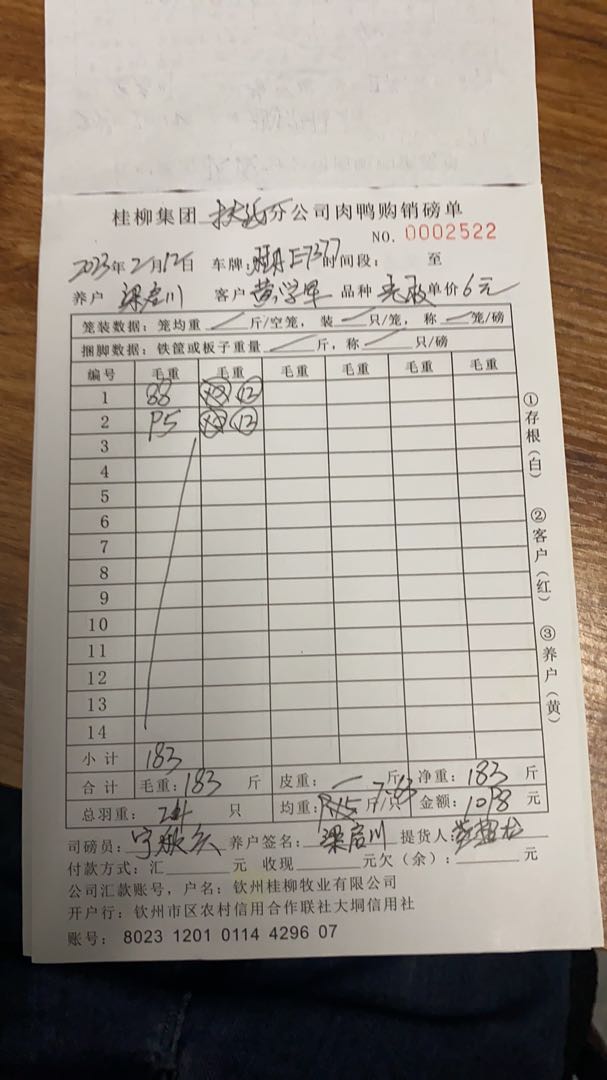 桂柳集团 分公司肉鸭购销磅单
NO. 0002522
2023年2月12日 车牌: E7377 时间段: 至
养户 梁启川 客户 黄学军 品种 单价 6元
笼装数据: 笼均重 斤/空笼, 装 只/笼, 称 笼/磅
捆脚数据: 铁筐或板子重量 斤, 称 只/磅
编号 毛重 毛重 毛重 毛重 毛重 毛重
1 88 12
2 95 12
3
4
5
6
7
8
9
10
11
12
13
14
小计 183
合计 毛重: 183 斤 皮重: 斤 净重: 183 斤
总羽重: 24 只 均重: 7.63 斤/只 金额: 1098 元
司磅员: 养户签名: 梁启川 提货人:
付款方式: 汇 元 收现 元欠(余): 元
公司汇款账号, 户名: 钦州桂柳牧业有限公司
开户行: 钦州市区农村信用合作联社大垌信用社
账号: 8023 1201 0114 4296 07
①存根(白)
②客户(红)
③养户(黄)